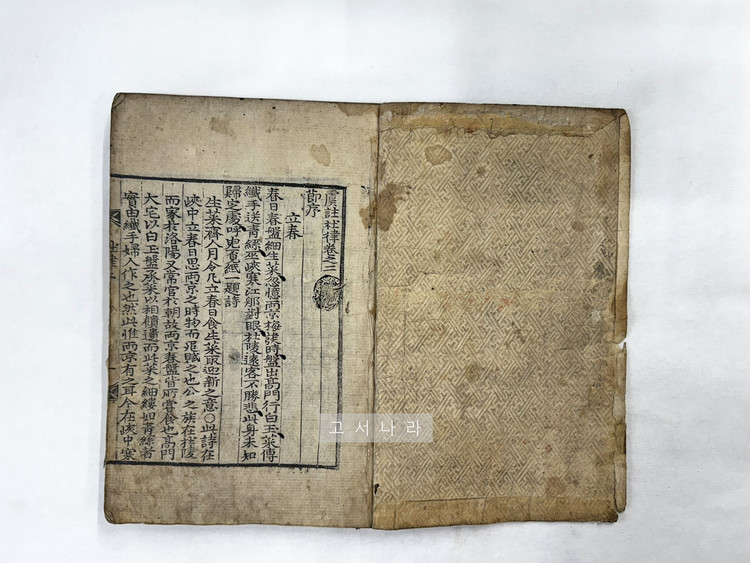 虞註杜律卷之二
節序
立春
春日春盤細生菜忽憶兩京梅發時盤出高門行白玉菜傳
纖手送青絲巫峽寒江那對眼杜陵遠客不勝悲此身未知
歸定處呼兒覓紙一題詩
生菜齊人月令凡立春日食生菜取迎新之意○此詩在
峽中立春日思兩京之時物而追賦之也公之族在杜陵
而家於洛陽又嘗官於朝故兩京春盤皆所嘗食也高門
大宅以白玉盤承菜以相饋遺而此菜之細縷如青絲者
實由纖手婦人作之也然此惟兩京有之耳今在峽中寒
杜律
고서나라